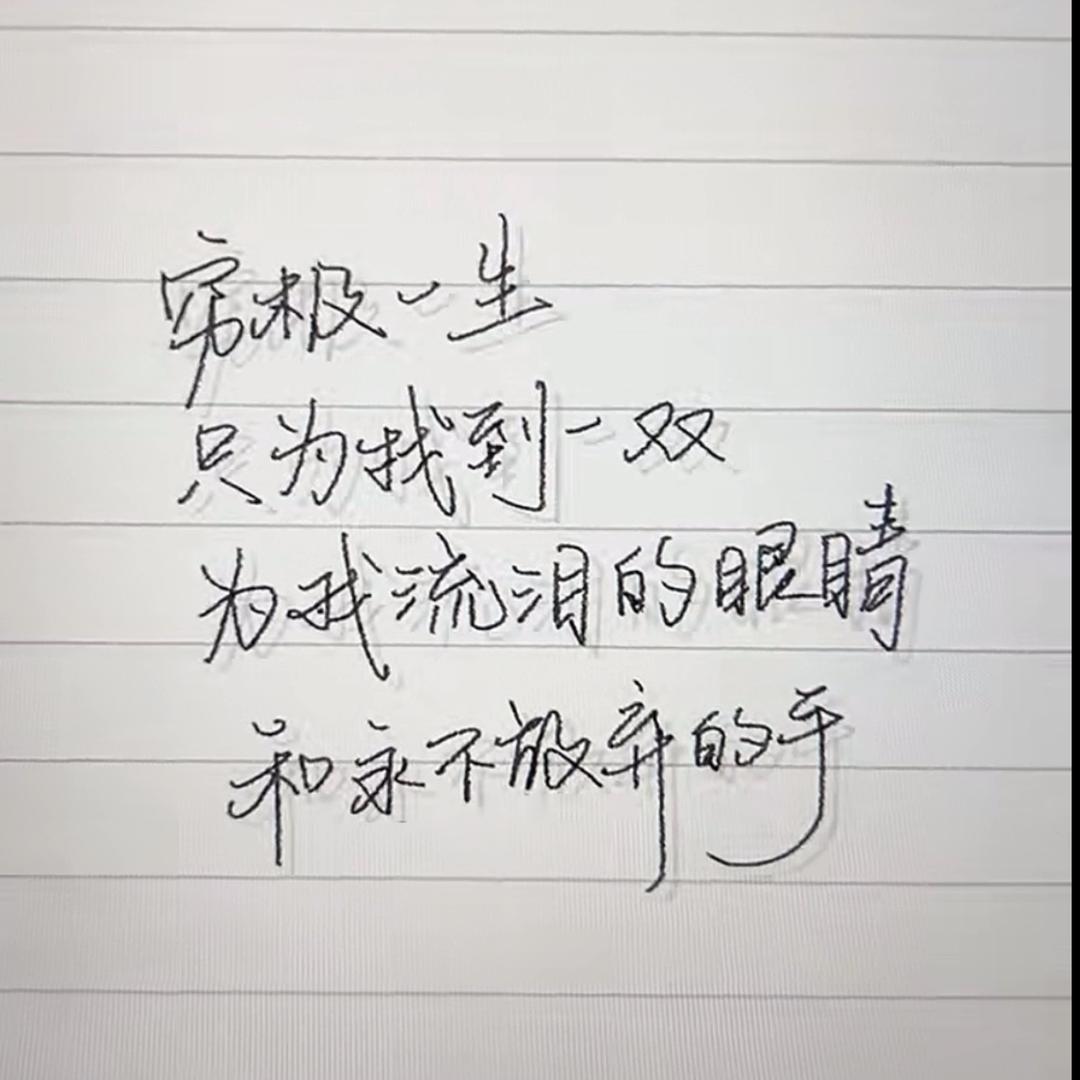 穷极一生
只为找到一双
为我流泪的眼睛
和永不放弃的手